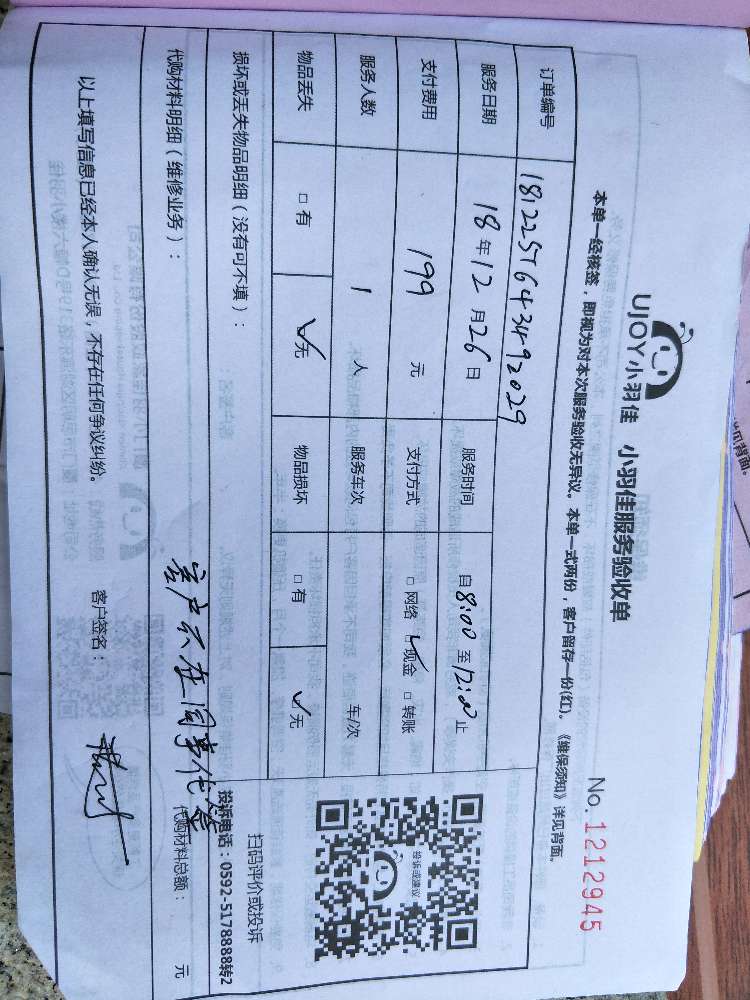 UJOY小羽佳 小羽佳服务验收单
No. 1212945
本单一经核签，即视为对本次服务验收无异议。本单一式两份，客户留存一份(红)。《维保须知》详见背面。
订单编号 181225764349 2029
服务日期 18年12月26日 服务时间 自8:00至12:00止
支付费用 199 元 支付方式 □网络 ☑现金 □转账
服务人数 1 人 服务车次 车/次
物品丢失 □有 ☑无 物品损坏 □有 ☑无
投诉或建议
扫码评价或投诉
投诉电话：0592-5178888转2
损坏或丢失物品明细（没有可不填）：
客户不在同事代签
代购材料明细（维修业务）： 代购材料总额： 元
以上填写信息已经本人确认无误，不存在任何争议纠纷。 客户签名：
见背面。